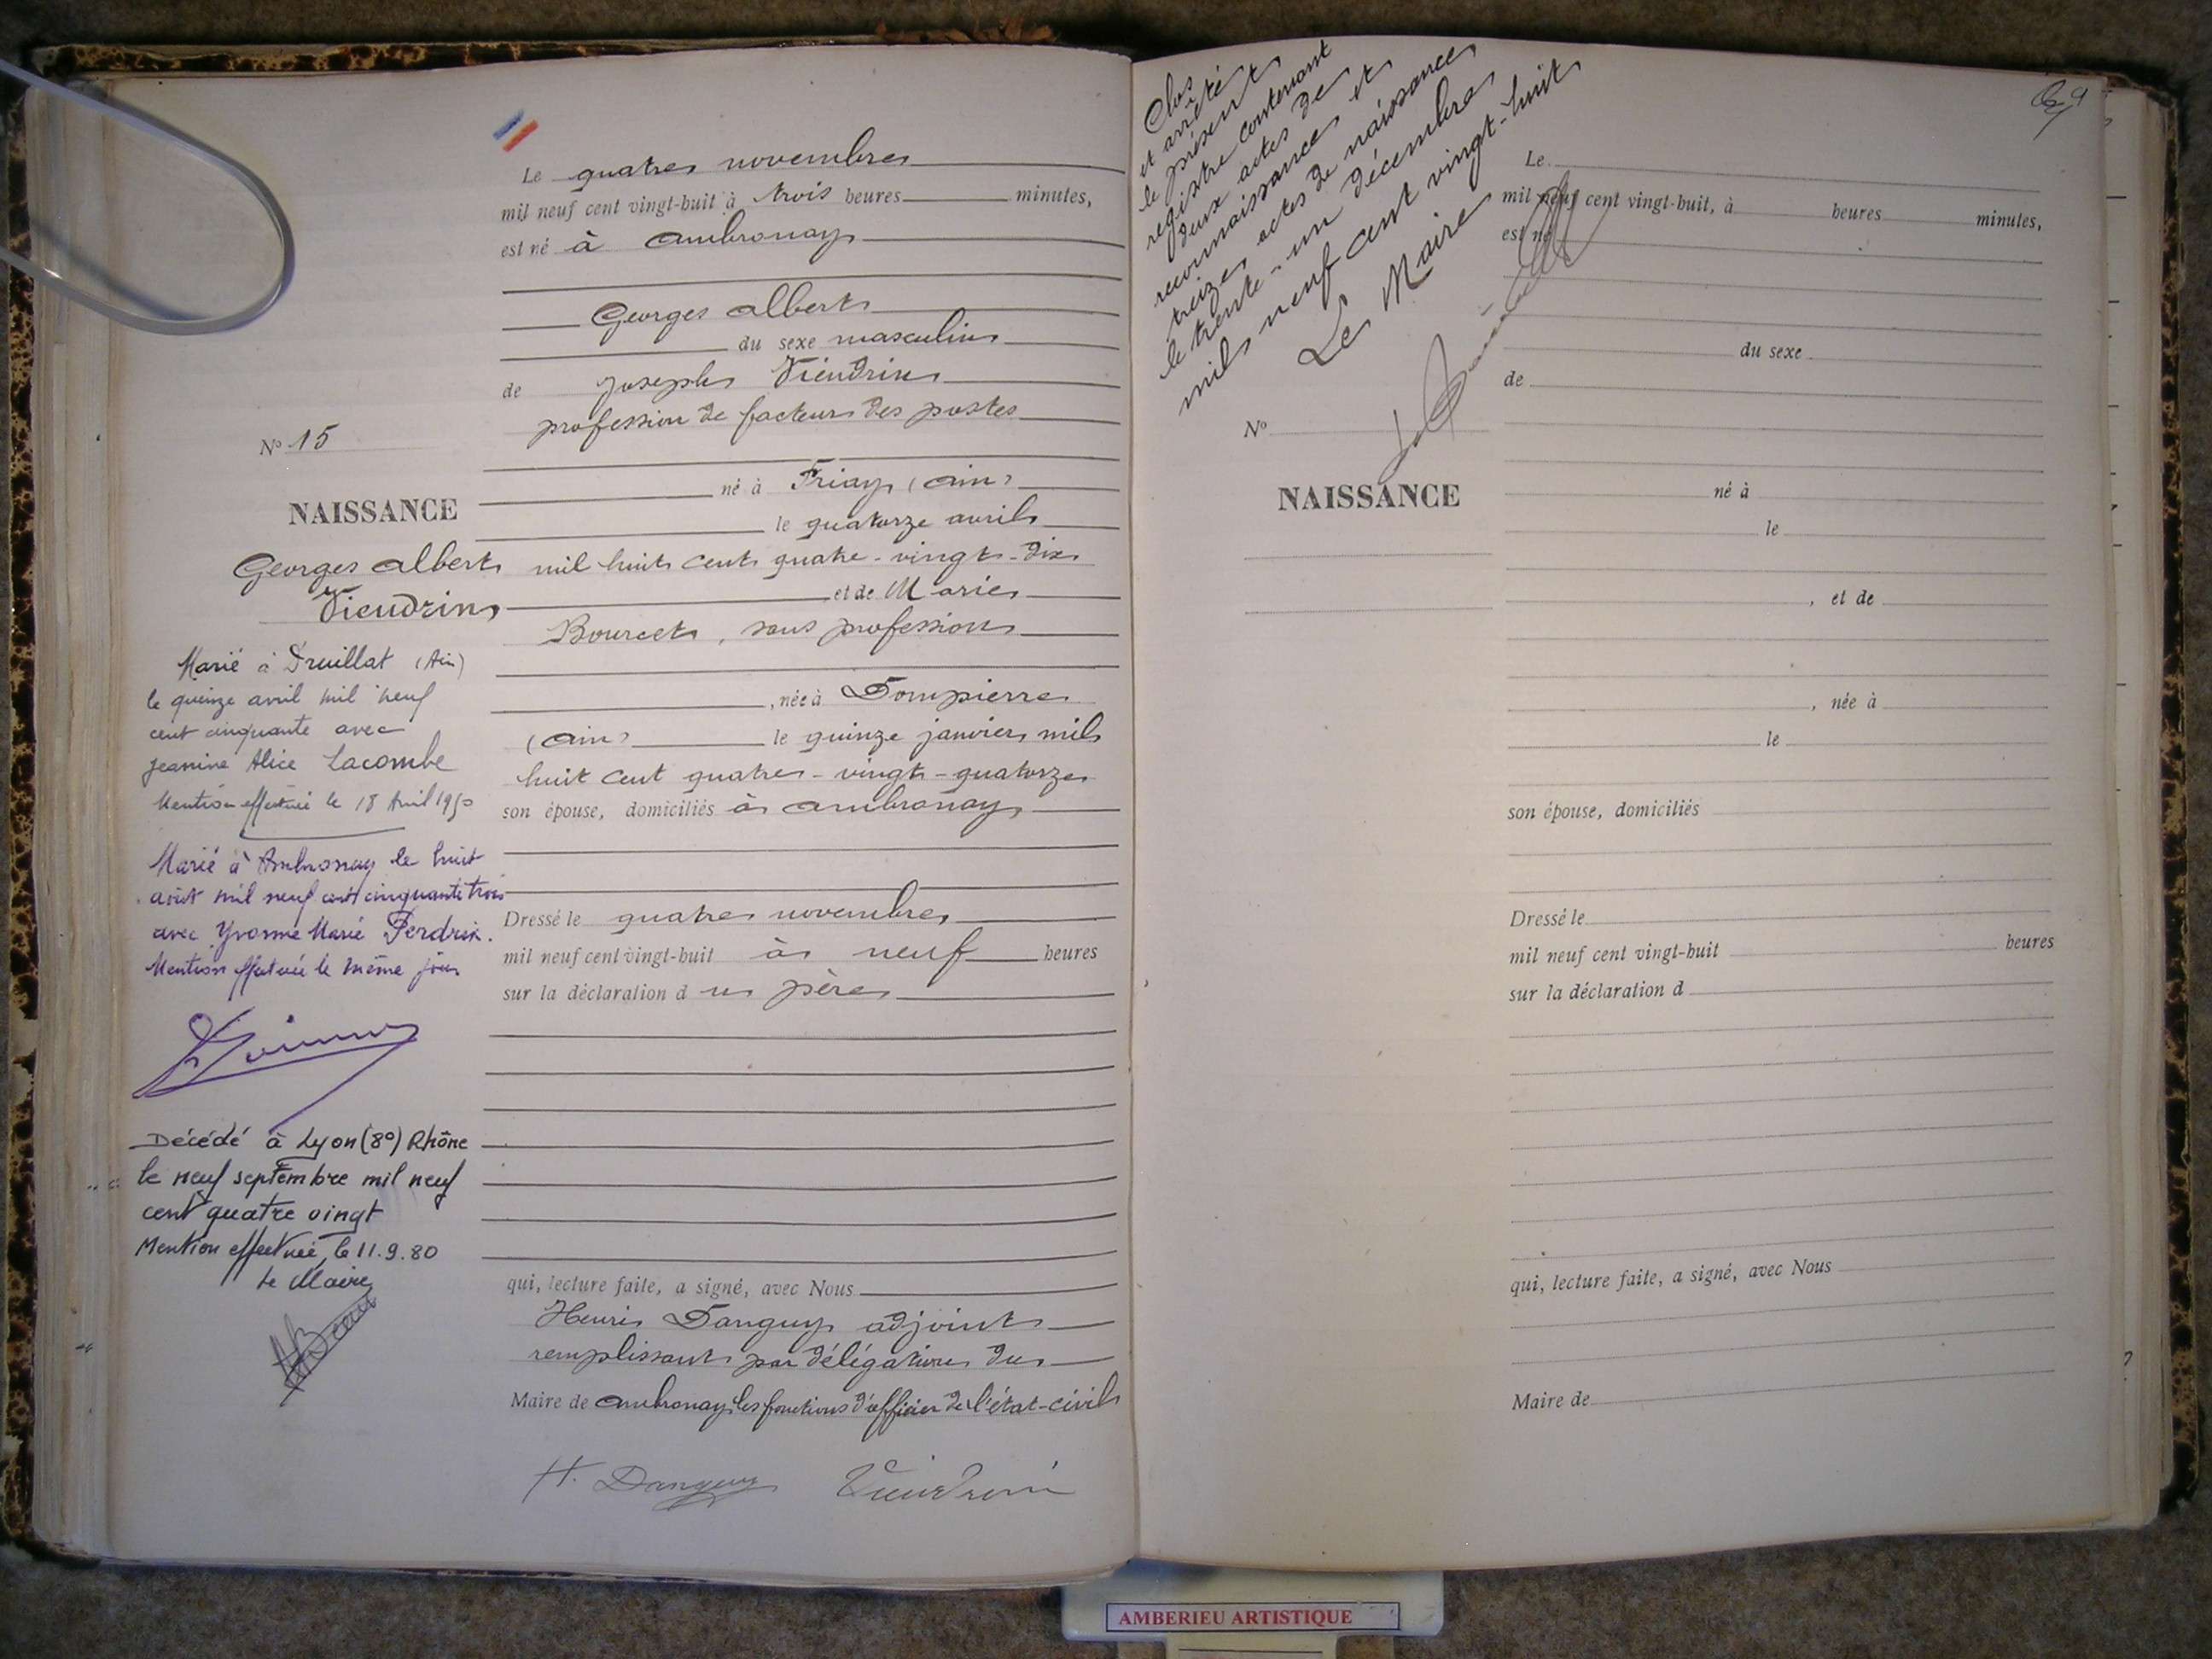 Le quatre novembre
mil neuf cent vingt-huit à trois heures minutes,
est né à Ambronay
Georges Albert
du sexe masculin
de Joseph Viendrin
profession de facteur des postes
né à Priay (Ain)
le quatorze avril
mil huit cent quatre-vingt-dix
et de Marie
Bourcet, sans profession
, née à Dompierre
(Ain) le quinze janvier mil
huit cent quatre-vingt-quatorze
son épouse, domiciliés à Ambronay
Dressé le quatre novembre
mil neuf cent vingt-huit à neuf heures
sur la déclaration du père
qui, lecture faite, a signé, avec Nous
Henri Danguy adjoint
remplissant par délégation du
Maire de Ambronay les fonctions d'officier de l'état-civil
H. Danguy Viendrin
N° 15
NAISSANCE
Georges Albert
Viendrin
Marié à Druillat (Ain)
le quinze avril mil neuf
cent cinquante avec
Jeanine Alice Lacombe
Mention effectuée le 18 Avril 1950
Marié à Ambronay le huit
août mil neuf cent cinquante trois
avec Yvonne Marie Perdrix.
Mention effectuée le même jour
Décédé à Lyon (8°) Rhône
le neuf septembre mil neuf
cent quatre vingt
Mention effectuée, le 11.9.80
Le Maire
Clos
et arrêté
le présent
registre contenant
deux actes de
reconnaissance et
treize actes de naissance
le trente-un décembre
mil neuf cent vingt-huit
Le Maire
Le
mil neuf cent vingt-huit, à heures minutes,
est né
du sexe
de
N°
NAISSANCE
né à
le
, et de
, née à
le
son épouse, domiciliés
Dressé le
mil neuf cent vingt-huit heures
sur la déclaration d
qui, lecture faite, a signé, avec Nous
Maire de
AMBERIEU ARTISTIQUE